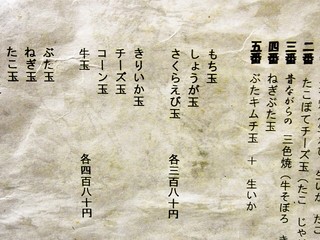 二番
たこぽてチーズ玉(たこ じゃ
三番 昔ながらの 三色焼(牛そぼろ き
四番 ねぎぶた玉
五番 ぶたキムチ玉 + 生いか
もち玉
しょうが玉
さくらえび玉 各三百八十円
きりいか玉
チーズ玉
コーン玉
牛玉 各四百八十円
ぶた玉
ねぎ玉
たこ玉